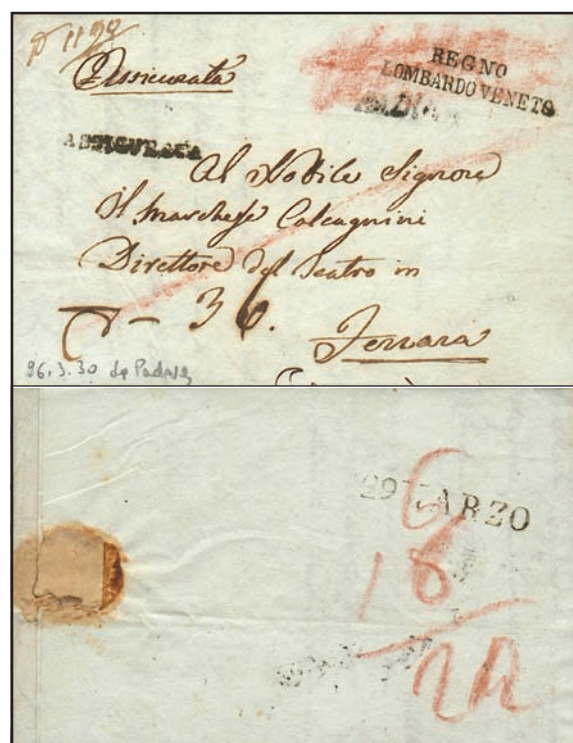 Assicurata
REGNO
LOMBARDO VENETO
ASSICURATA
Al Nobile Signore
Il Marchese Calcagnini
Direttore del Teatro in
30.
Ferrara
26.3.30 da Padova
29 MARZO
6
18
24